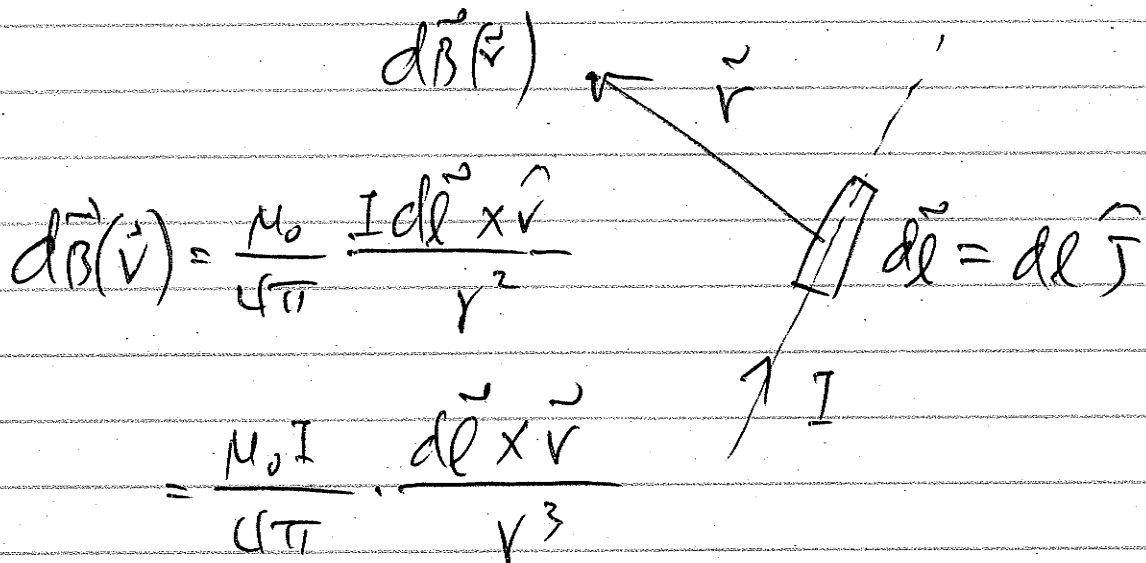 dB⃗(r⃗)
r⃗
dB⃗(r⃗) = μ₀/4π · I dl⃗ × r̂ / r²
dl⃗ = dl Ĵ
I
= μ₀I/4π · dl⃗ × r⃗ / r³